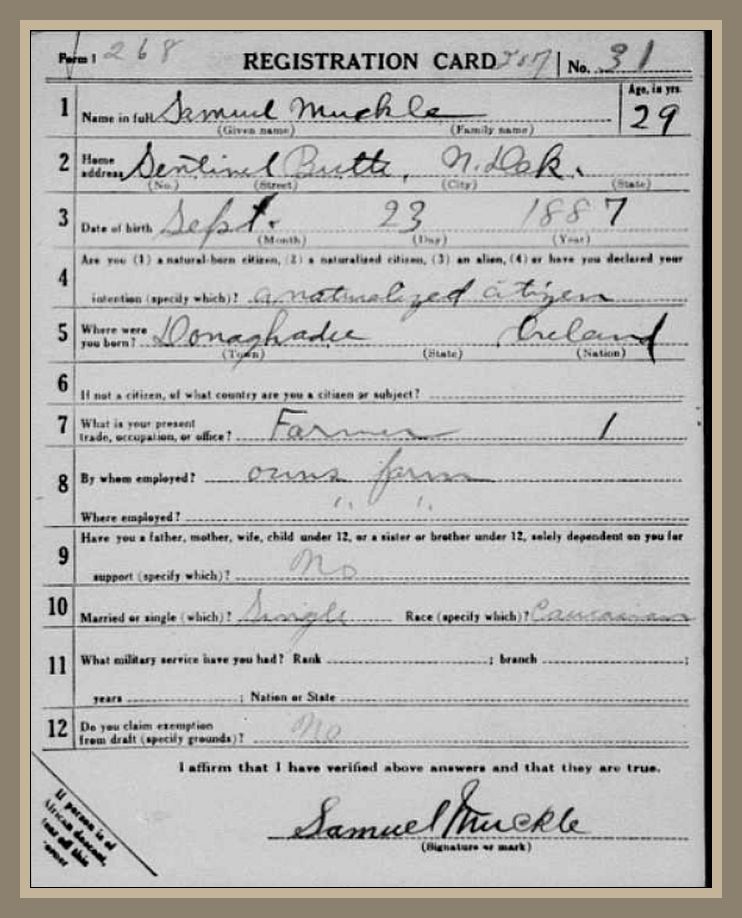 Form 1 268 REGISTRATION CARD No. 31
1 Name in full Samuel Muckle Age, in yrs. 29
(Given name) (Family name)
2 Home address Sentinel Butte, N. Dak.
(No.) (Street) (City) (State)
3 Date of birth Sept. 23 1887
(Month) (Day) (Year)
4 Are you (1) a natural-born citizen, (2) a naturalized citizen, (3) an alien, (4) or have you declared your
intention (specify which)? a naturalized citizen
5 Where were you born? Donaghadee Ireland
(Town) (State) (Nation)
6 If not a citizen, of what country are you a citizen or subject?
7 What is your present
trade, occupation, or office? Farmer 1
8 By whom employed? owns farm
Where employed? " "
9 Have you a father, mother, wife, child under 12, or a sister or brother under 12, solely dependent on you for
support (specify which)? No
10 Married or single (which)? Single Race (specify which)? Caucasian
11 What military service have you had? Rank ; branch ;
years ; Nation or State
12 Do you claim exemption
from draft (specify grounds)? No
I affirm that I have verified above answers and that they are true.
Samuel Muckle
(Signature or mark)
If person is of
African descent,
off this
corner